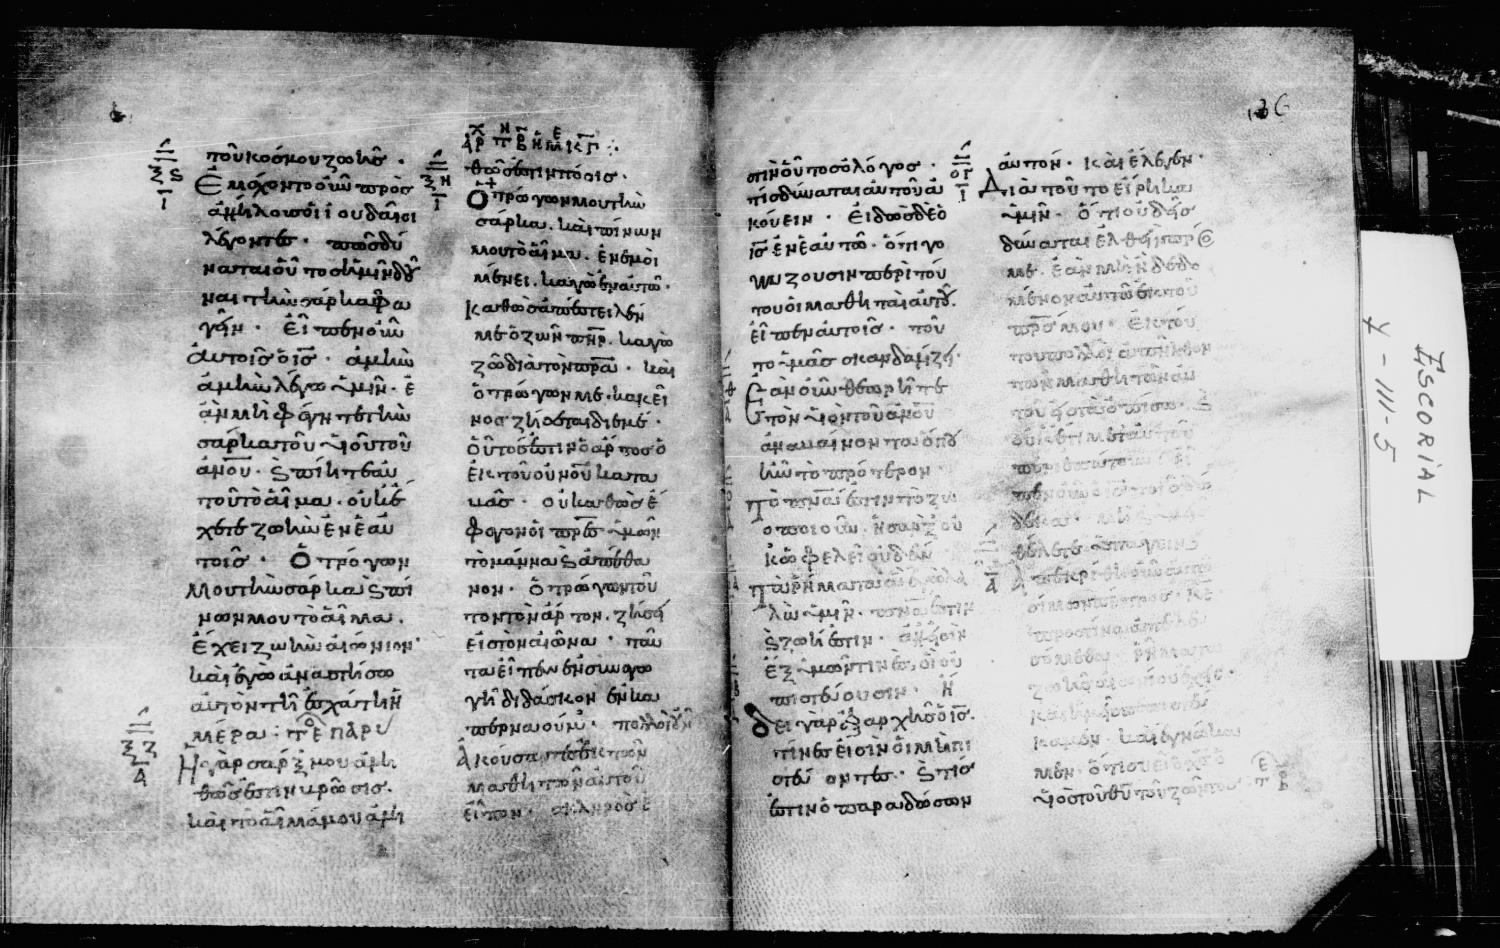 τοῦ κόσμου ζωῆς·
Ἐμάχοντο οὖν πρὸς
ἀλλήλους οἱ ἰουδαῖοι
λέγοντες· πῶς δύ
ναται οὗτος ἡμῖν δοῦ
ναι τὴν σάρκα φα
γεῖν· εἶπεν οὖν
αὐτοῖς ὁ ις· ἀμὴν
ἀμὴν λέγω ὑμῖν· ἐ
ὰν μὴ φάγητε τὴν
σάρκα τοῦ υἱοῦ τοῦ
ανου· καὶ πίητε αὐ
τοῦ τὸ αἷμα· οὐκ ἔ
χετε ζωὴν ἐν ἑαυ
τοῖς· Ὁ τρώγων
μου τὴν σάρκα καὶ πί
νων μου τὸ αἷμα·
ἔχει ζωὴν αἰώνιον·
καὶ ἐγὼ ἀναστήσω
αὐτὸν τῇ ἐσχάτῃ ἡ
μέρα:
Ἡ γὰρ σάρξ μου ἀλη
θῶς ἐστιν βρῶσις·
καὶ τὸ αἷμά μου ἀλη
θῶς ἐστιν πόσις·
Ὁ τρώγων μου τὴν
σάρκα· καὶ πίνων
μου τὸ αἷμα· ἐν ἐμοὶ
μένει· καγὼ ἐν αὐτῶ·
καθὼς ἀπέστειλέν
με ὁ ζῶν πηρ· καγὼ
ζῶ διὰ τὸν πρα· καὶ
ὁ τρώγων με· κακεῖ
νος ζήσεται δι' ἐμέ·
οὗτός ἐστιν ὁ ἄρτος ὁ
ἐκ τοῦ οὐνοῦ κατα
βάς· οὐ καθὼς ἔ
φαγον οἱ πρες ὑμῶν
τὸ μάννα καὶ ἀπέθα
νον· ὁ τρώγων τοῦ
τον τὸν ἄρτον· ζήσε
εἰς τὸν αἰῶνα· ταῦ
τα εἶπεν ἐν συναγω
γῇ διδάσκων ἐν κα
περναούμ· πολλοὶ οὖν
ἀκούσαντες ἐκ τῶν
μαθητῶν αὐτοῦ
εἶπον· σκληρός ἐ
στιν οὗτος ὁ λόγος·
τίς δύναται αὐτοῦ ἀ
κούειν· εἰδὼς δὲ ὁ
ις ἐν ἑαυτῶ· ὅτι γο
γγύζουσιν περὶ τού
του οἱ μαθηταὶ αὐτοῦ·
εἶπεν αὐτοῖς· τοῦ
το ὑμᾶς σκανδαλίζει·
Ἐὰν οὖν θεωρῆτε
τὸν υἱὸν τοῦ ανου
ἀναβαίνοντα ὅπου
ἦν τὸ πρότερον
τὸ πνα ἐστιν τὸ ζω
οποιοῦν· ἡ σὰρξ οὐ
κ ὠφελεῖ οὐδέν·
τὰ ῥήματα ἃ ἐγὼ λα
λῶ ὑμῖν· πνα ἐστιν
καὶ ζωή ἐστιν· ἀλλ' εἰσὶν
ἐξ ὑμῶν τινὲς οἳ οὐ
πιστεύουσιν· ἤ
δει γὰρ ἐξ ἀρχῆς ὁ ις·
τίνες εἰσὶν οἱ μὴ πι
στεύοντες· καὶ τίς
ἐστιν ὁ παραδώσων
αὐτόν· καὶ ἔλεγεν·
Διὰ τοῦτο εἴρηκα
ὑμῖν· ὅτι οὐδεὶς
δύναται ἐλθεῖν πρός
με· ἐὰν μὴ ᾖ δεδο
μένον αὐτῶ ἐκ τοῦ
πρς μου· ἐκ τού
του πολλοὶ ἀπῆλθον
τῶν μαθητῶν αὐ
τοῦ εἰς τὰ ὀπίσω· καὶ
οὐκέτι μετ' αὐτοῦ
ἀπεκρίθη οὖν αὐτῶ
σίμων πέτρος· κε
πρὸς τίνα ἀπελευ
σόμεθα· ῥήματα
ζωῆς αἰωνίου ἔχεις·
καὶ ἡμεῖς πεπιστεύ
καμεν· καὶ ἐγνώκα
μεν· ὅτι σὺ εἶ ὁ χς ὁ
υἱὸς τοῦ θυ τοῦ ζῶντος
ESCORIAL
Y-III-5